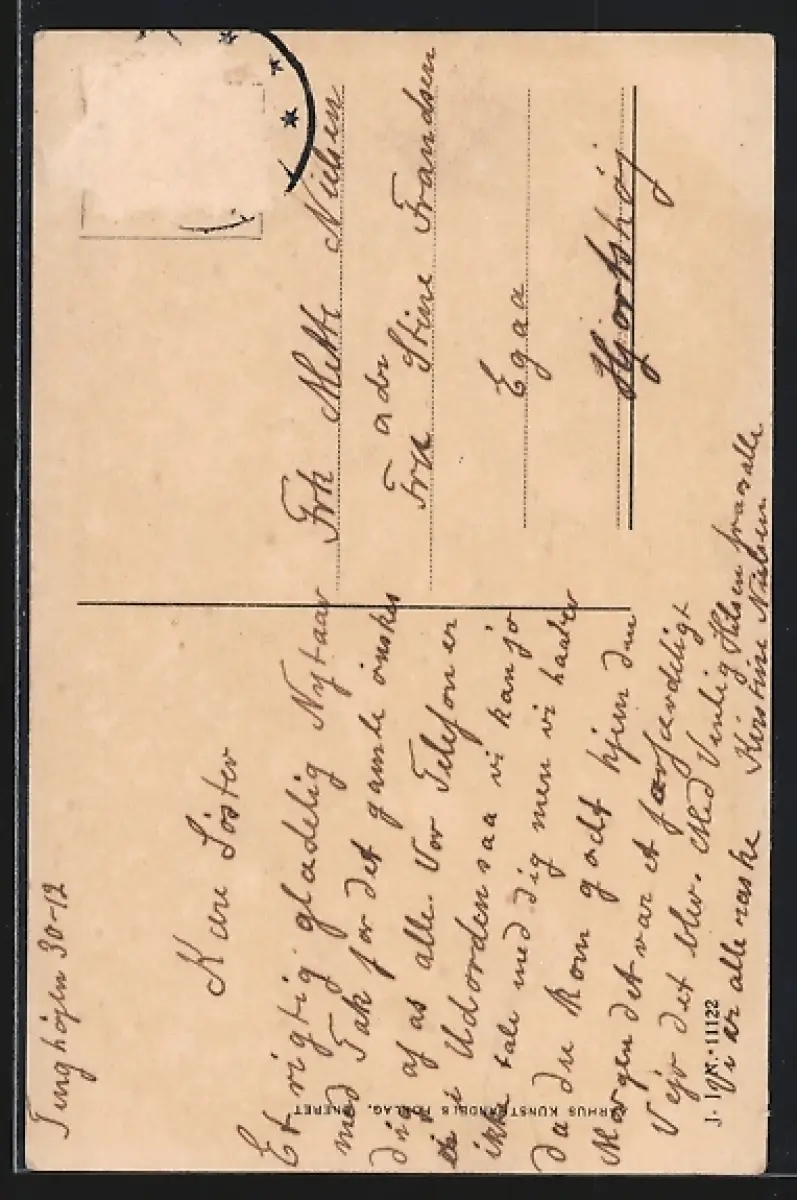 Tinghøjen 30-12
Kære Søster
Et rigtig glædelig Nytaar
med Tak for det gamle ønskes
dig af os alle. Vor Telefon er
i Udorden saa vi kan jo
ikke tale med dig men vi haaber
da du kom godt hjem den
Morgen det var et forfærdeligt
Vejr det blev. Med Venlig Hilsen fra os alle
Vi er alle raske Kirstine Nielsen
Frk Mette Nielsen
adr
Fru Stine Frandsen
Egaa
Hjortshøj
AARHUS KUNSTHANDELS FORLAG. ENERET
J. J. N. 11122